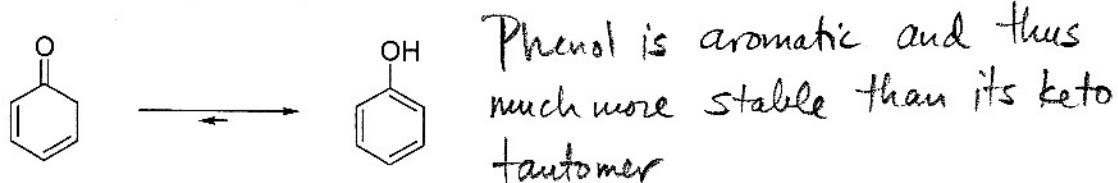 O
OH
Phenol is aromatic and thus
much more stable than its keto
tautomer